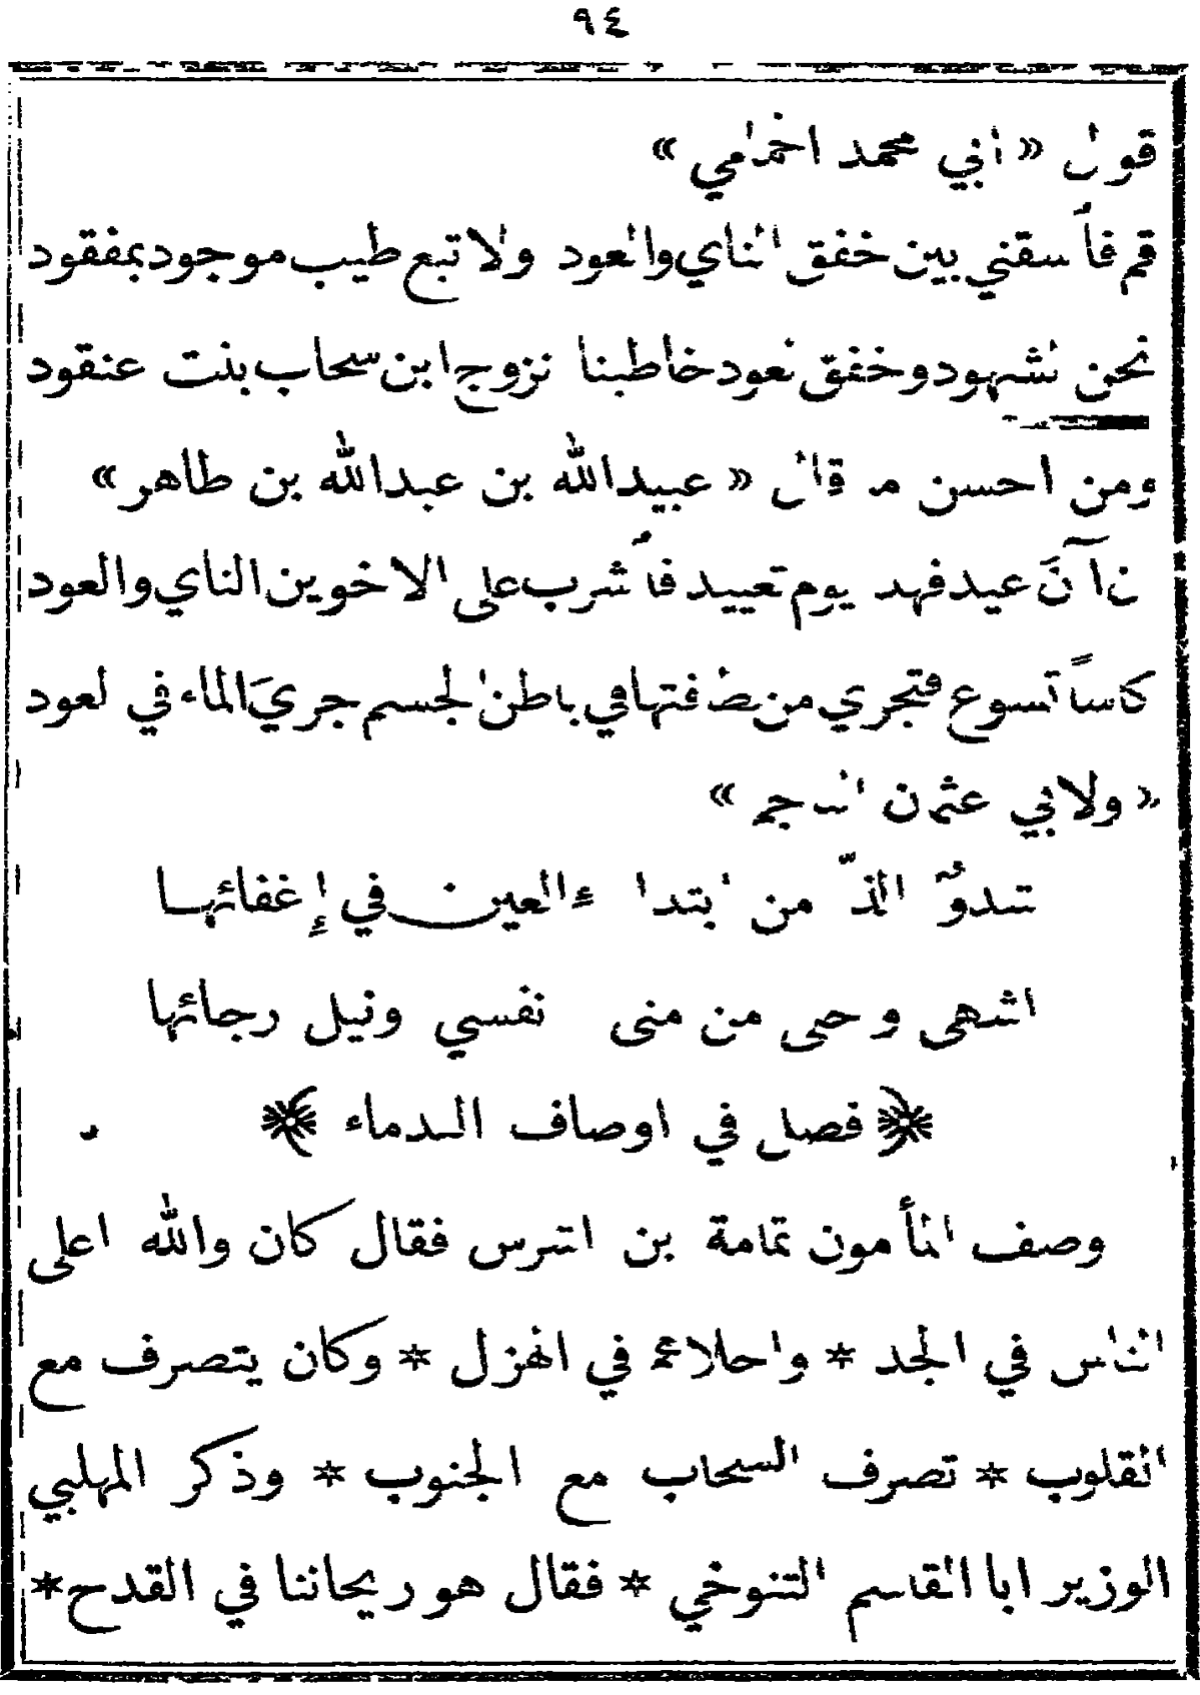 ٩٤
قول « أبي محمد الحمامي »
قم فأسقني بين خفق الناي والعود ولا تبع طيب موجود بمفقود
نحن الشهود وخفق العود خاطبنا نزوج ابن سحاب بنت عنقود
ومن احسن ما قال « عبيدالله بن عبدالله بن طاهر »
عيد فهد يوم تعييد فأشرب على الاخوين الناي والعود
كاساً تسوغ فتجري من لطافتها في باطن الجسم جريَ الماء في العود
« ولابي عثمن الناجم »
شدوٌ الذّ من ابتداء العين في إغفائها
اشهى وحى من منى نفسي ونيل رجائها
﴿ فصل في اوصاف الندماء ﴾
وصف المأمون ثمامة بن اشرس فقال كان والله اعلى
الناس في الجد * واحلاهم في الهزل * وكان يتصرف مع
القلوب * تصرف السحاب مع الجنوب * وذكر المهلبي
الوزير ابا القاسم التنوخي * فقال هو ريحاننا في القدح *